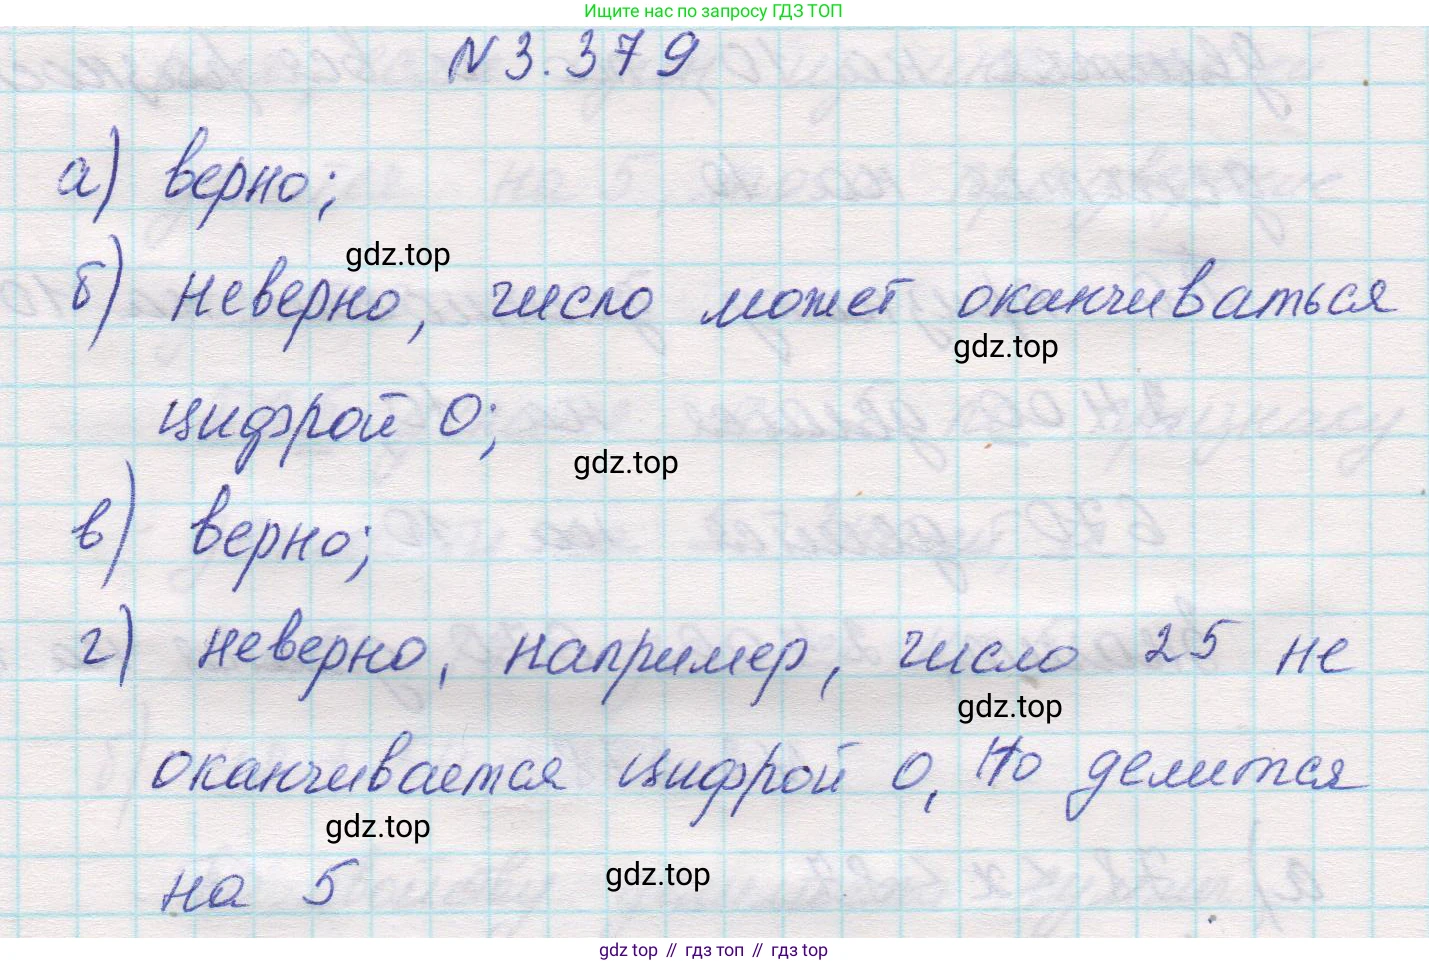 Ищите нас по запросу ГДЗ ТОП
N 3.379
а) верно;
gdz.top
б) неверно, число может оканчиваться
gdz.top
цифрой 0;
gdz.top
в) верно;
г) неверно, например, число 25 не
gdz.top
оканчивается цифрой 0, но делится
gdz.top
на 5
gdz.top
gdz top // гдз топ // gdz top